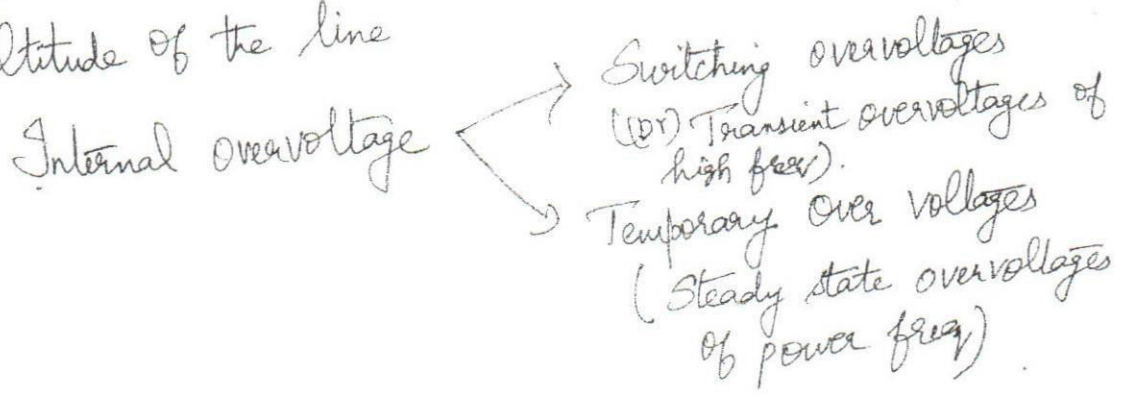 ltitude of the line
Internal overvoltage
Switching overvoltages
((or) Transient overvoltages of
high freq).
Temporary Over voltages
(Steady state overvoltages
of power freq)